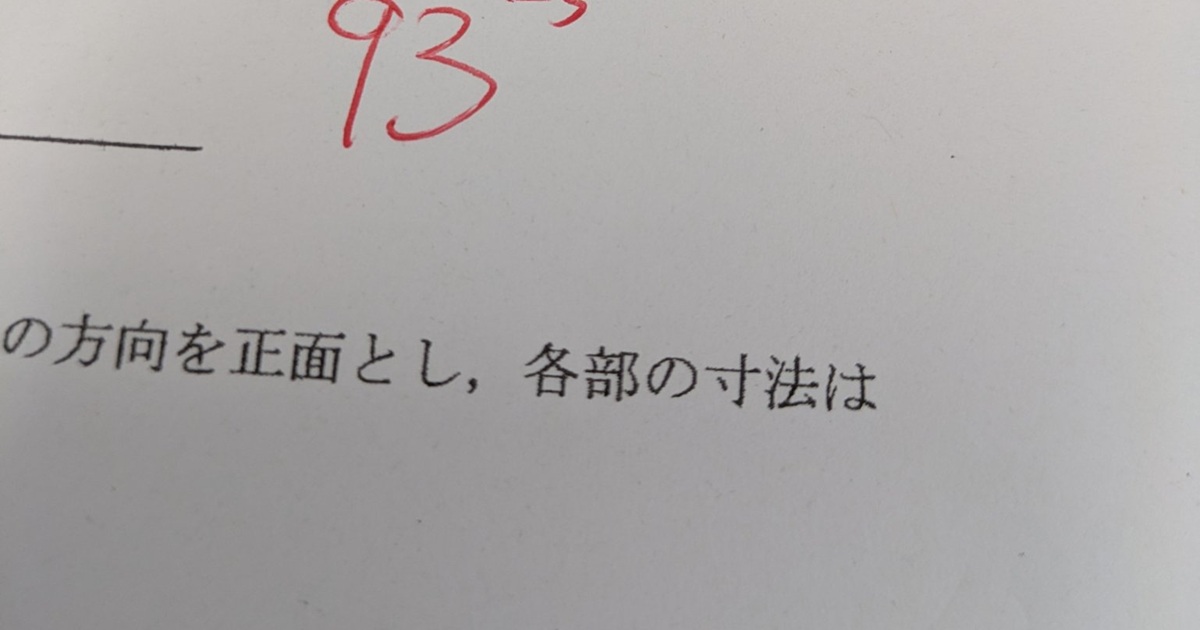 93
の方向を正面とし，各部の寸法は